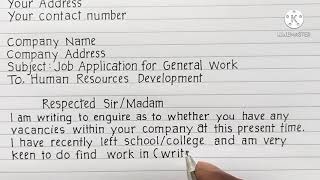 Your Address
Your contact number
Company Name
Company Address
Subject: Job Application for General Work
To, Human Resources Development
Respected Sir/Madam
I am writing to enquire as to whether you have any
vacancies within your company at this present time.
I have recently left school/college and am very
keen to do find work in (writ
KINEMASTER